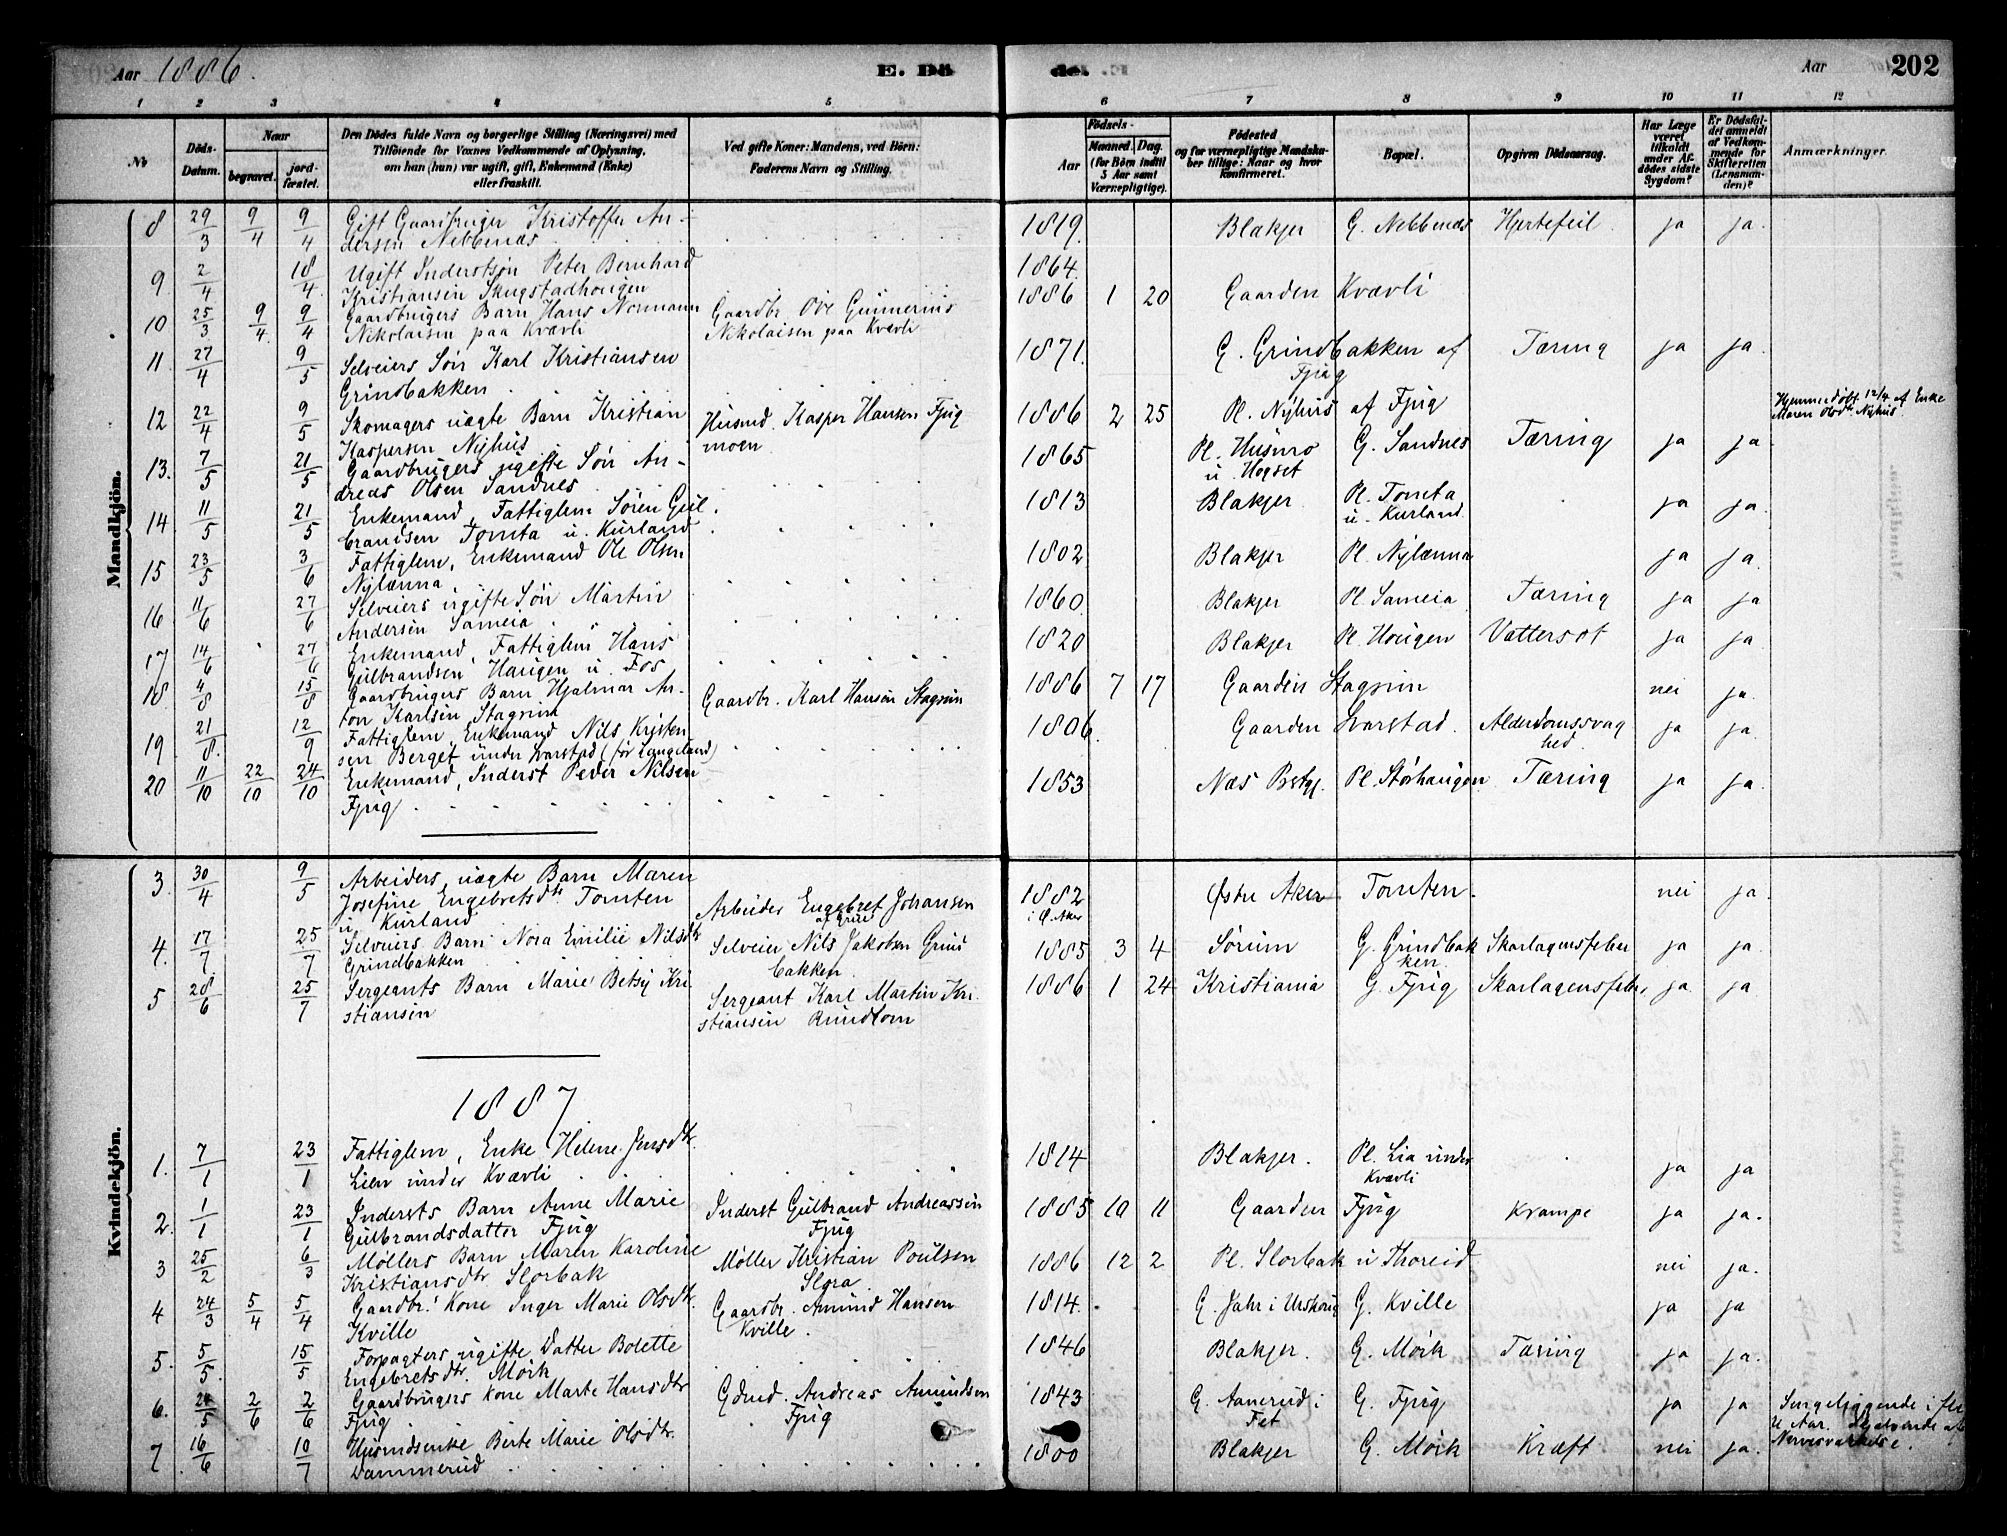 Aar 1886. E. Döde. Aar 202
1 2 3 4 5 6 7 8 9 10 11 12
No
Döds-Datum.
Naar
begravet.
jordfæstet.
Den Dödes fulde Navn og borgerlige Stilling (Næringsvei) med
Tilföiende for Voxnes Vedkommende af Oplysning,
om han (hun) var ugift, gift, Enkemand (Enke)
eller fraskilt.
Ved gifte Koner: Mandens, ved Börn:
Faderens Navn og Stilling.
Födsels-
Aar
Maaned. Dag.
(for Börn indtil
5 Aar samt
Værnepligtige).
Födested
og for værnepligtige Mandska-
ber tillige: Naar og hvor
konfirmeret.
Bopæl.
Opgiven Dödsaarsag.
Har Læge
været
tilkaldt
under Af-
dödes sidste
Sygdom?
Er Dödsfal-
det anmeldt
af Vedkom-
mende for
Skifteretten
(Lensman-
den)?
Anmærkninger.
Mandkjön.
8 29/3 9/4 9/4 Gift Gaardbruger Kristoffer An- 1819. Blakjer G. Nebbenæs Hjertefeil. ja ja.
dersen Nebbenæs
9. 2/4 18/4 Ugift Inderstsøn Peter Bernhard 1864.
Kristiansen Skugstadhougen
10 25/3 9/4. 9/4 Gaardbrugers Barn Hans Normann Gaardbr. Ove Gunnerius 1886 1 20 Gaarden Kvævli
Nikolaisen paa Kvævli Nikolaisen paa Kvævli
11. 27/4 9/5 Selveiers Søn Karl Kristiansen 1871. G. Grindbakken af Tæring ja ja.
Grindbakken Fjug
12 22/4 9/5 Skomagers uægte Barn Kristian Husmd. Kasper Hansen Fjug 1886 2 25 Pl. Nyhus af Fjug Hjemmedøbt 12/4 af Enke
Kaspersen Nyhus moen Maren Olsdtr Nyhus
13. 7/5 21/5 Gaardbrugers ugifte Søn An- 1865 Pl. Husmo G. Sandnes Tæring ja ja
dreas Olsen Sandnes u. Hogset
14 11/5 21/5 Enkemand, Fattiglem Søren Gul 1813 Blakjer Pl. Tomta ja ja.
brandsen Tomta u. Kurland u. Kurland
15 23/5 3/6 Fattiglem, Enkemand Ole Olsen 1802 Blakjer Pl. Nylænna ja ja.
Nylænna
16 11/6 27/6 Selveiers ugifte Søn Martin 1860. Blakjer Pl. Sameia Tæring ja ja
Andersen Sameia
17 14/6 27/6 Enkemand, Fattiglem Hans 1820 Blakjer Pl. Hougen Vattersot ja ja
Gulbrandsen Haugen u. Fos
18 4/8 15/8 Gaardbrugers Barn Hjalmar An- Gaardbr. Karl Hansen Stagrim 1886 7 17 Gaarden Stagrim nei ja.
ton Karlsen Stagrim
19 21/8. 12/9 Fattiglem, Enkemand Nils Kristen 1806. Gaarden Svarstad. Alderdomssvag ja ja.
sen Berget under Svarstad (før Langeland) hed.
20 11/10 22/10 24/10 Enkemand, Inderst Peder Nilsen 1853 Næs Pstgj. Pl. Storhaugen Tæring ja ja.
Fjug
Kvindekjön.
3. 30/4 9/5 Arbeiders uægte Barn Maren 1882 Østre Aker Tomten. nei ja.
Josefine Engebretsdtr Tomten Arbeider Engebret Johansen i Ø. Aker
u Kurland
4. 17/7 25/7 Selveiers Barn Nora Emilie Nilsdtr Selveier Nils Jakobsen Grind 1885 3 4 Sørum G. Grindbak Skarlagensfeber ja ja.
Grindbakken bakken. ken.
5 28/6 25/7 Sergeants Barn Marie Betsy Kri Sergeant Karl Martin Kri. 1886 1 24 Kristiania G. Fjug Skarlagensfeber, ja ja
stiansen stiansen Rundtom
1887
1. 7/1 23/1 Fattiglem, Enke Helene Jensdtr. 1814 Blakjer. Pl. Lia under ja ja
Lien under Kvævli Kvævli
2. 1/1 23/1 Inderts Barn Anne Marie Inderst Gulbrand Andreassen 1885 10 11 Gaarden Fjug Krampe ja ja.
Gulbrandsdatter Fjug Fjug
3 25/2 6/3 Møllers Barn Maren Karoline Møller Kristian Poulsen 1886 12 2 Pl. Slorbak u Thoreid nei ja.
Kristiansdtr Slorbak Slora.
4 24/3 5/4 5/4 Gaardbr. Kone Inger Marie Olsdtr. Gaardbr. Amund Hansen 1814. G. Jahr i Urskoug G. Kville ja ja
Kville Kville.
5. 5/5. 15/5 Forpagters ugifte Datter Bolette 1846 Blakjer. G. Mørk Tæring ja ja.
Engebretsdtr. Mørk
6. 24/5 2/6 2/6 Gaardbrugers Kone Marte Hansdtr Gdmd. Andreas Amundsen 1843 G. Aanerud i G. Fjug ja ja Sengeliggende i fle
Fjug Fjug Fet re Aar. af
7 16/6 10/7 Husmdsenke Berte Marie Olsdtr. 1800 Blakjer G. Mørk Kræft. nei ja. Nervesvækelse.
Dammerud